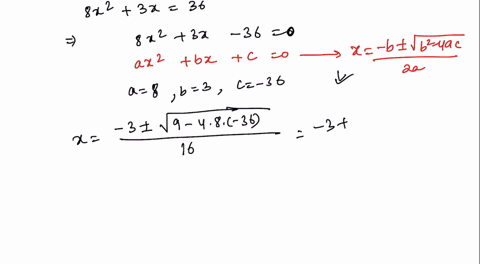 8x² + 3x = 36
⇒ 8x² + 3x - 36 = 0
ax² + bx + c = 0 → x = (-b ± √(b² - 4ac)) / 2a
a = 8, b = 3, c = -36
x = (-3 ± √(9 - 4·8·(-36))) / 16 = -3 +